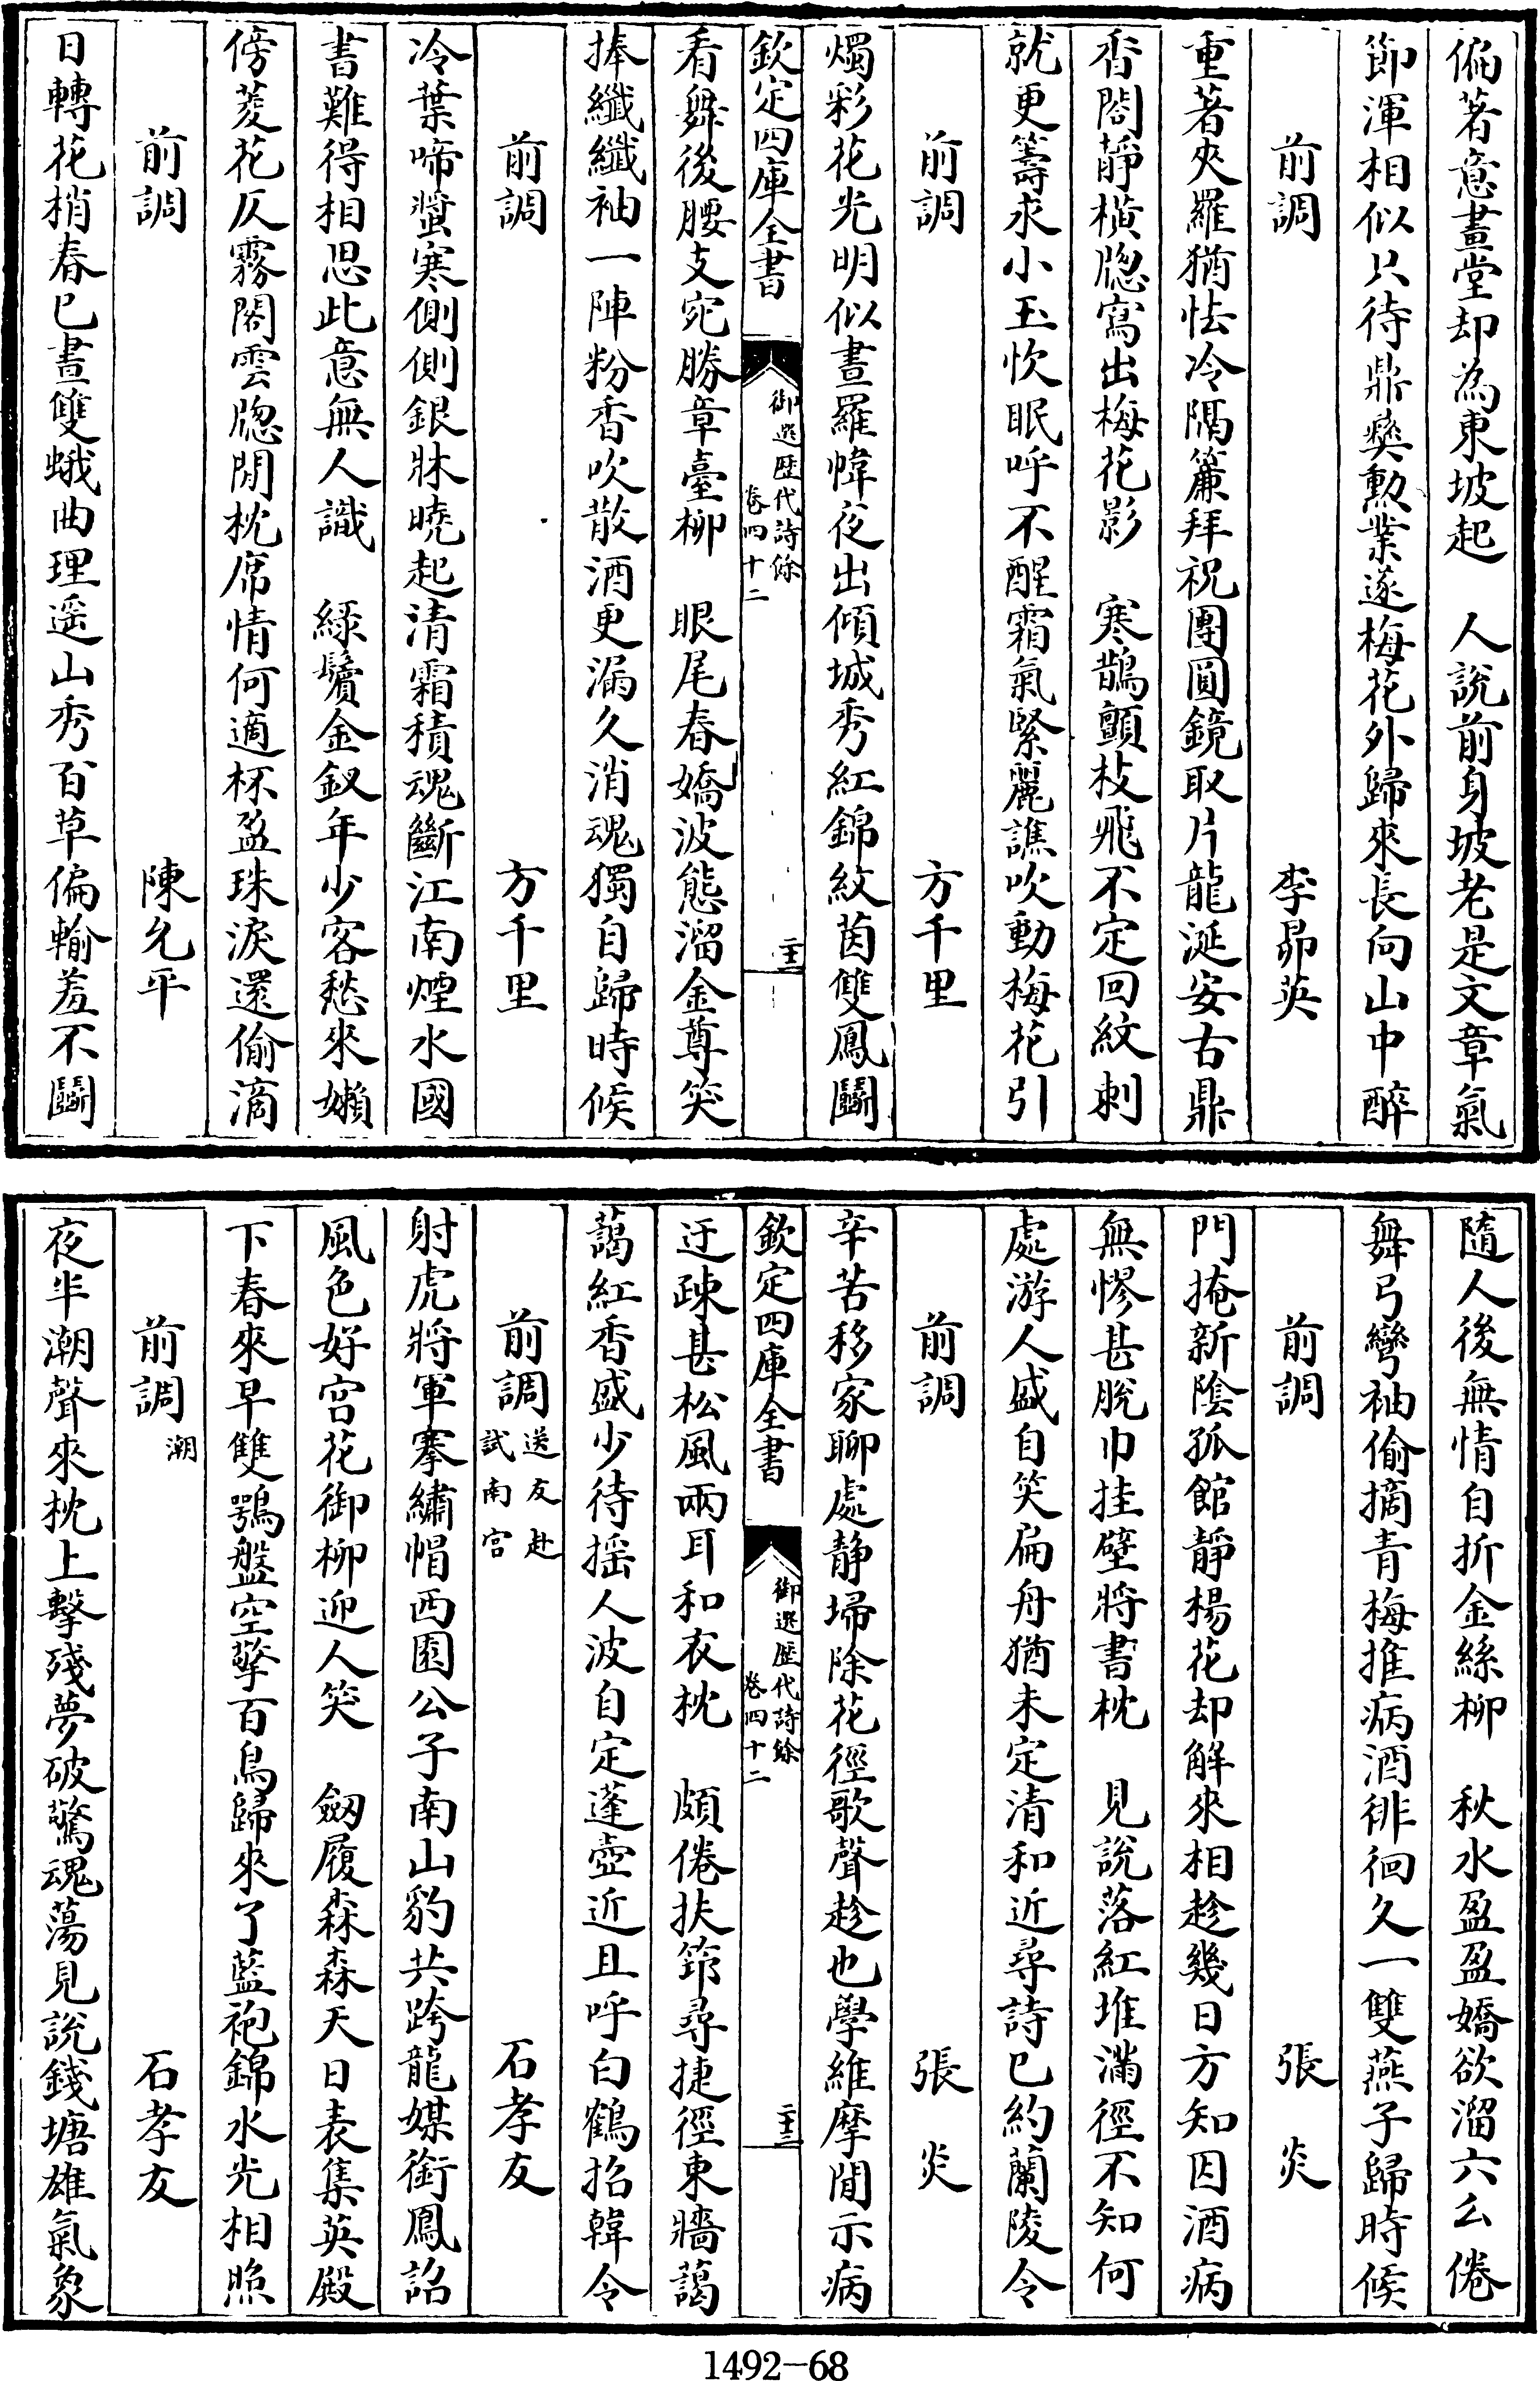 偏著意畫堂却為東坡起　人說前身坡老是文章氣
節渾相似只待鼎彞勲業遂梅花外歸來長向山中醉
前調　李昴英
重著夾羅猶怯冷隔簾拜祝團圓鏡取片龍涎安古鼎
香閣靜橫牕寫出梅花影　寒鵲顫枝飛不定回紋刺
就更籌求小玉忺眠呼不醒霜氣緊麗譙吹動梅花引
前調　方千里
燭彩花光明似晝羅幃夜出傾城秀紅錦紋茵雙鳳鬭
欽定四庫全書　御選歴代詩餘　卷四十二　二十二
看舞後腰支宛勝章臺柳　眼尾春嬌波態溜金尊笑
捧纖纖袖一陣粉香吹散酒更漏久消魂獨自歸時候
前調　方千里
冷葉啼螿寒側側銀牀曉起清霜積魂斷江南煙水國
書難得相思此意無人識　綠鬢金釵年少客愁來嬾
傍菱花仄霧閣雲牕閒枕席情何適杯盈珠淚還偷滴
前調　陳允平
日轉花梢春已晝雙蛾曲理遥山秀百草偏輸羞不鬭
隨人後無情自折金絲柳　秋水盈盈嬌欲溜六么倦
舞弓彎袖偷摘青梅推病酒徘徊久一雙燕子歸時候
前調　張炎
門掩新陰孤館靜楊花却解來相趁幾日方知因酒病
無憀甚脫巾挂壁將書枕　見說落紅堆滿徑不知何
處游人盛自笑扁舟猶未定清和近尋詩已約蘭陵令
前調　張炎
辛苦移家聊處静埽除花徑歌聲趁也學維摩閒示病
欽定四庫全書　御選歴代詩餘　卷四十二　二十三
迂疎甚松風兩耳和衣枕　頗倦扶筇尋捷徑東牆藹
藹紅香盛少待摇人波自定蓬壺近且呼白鶴招韓令
前調　送友赴試南宫　石孝友
射虎將軍搴繡帽西園公子南山豹共跨龍媒銜鳳詔
風色好宫花御柳迎人笑　劔履森森天日表集英殿
下春來早雙鶚盤空擎百鳥歸來了藍袍錦水光相照
前調　潮　石孝友
夜半潮聲來枕上擊殘夢破驚魂蕩見說錢塘雄氣象
1492-68